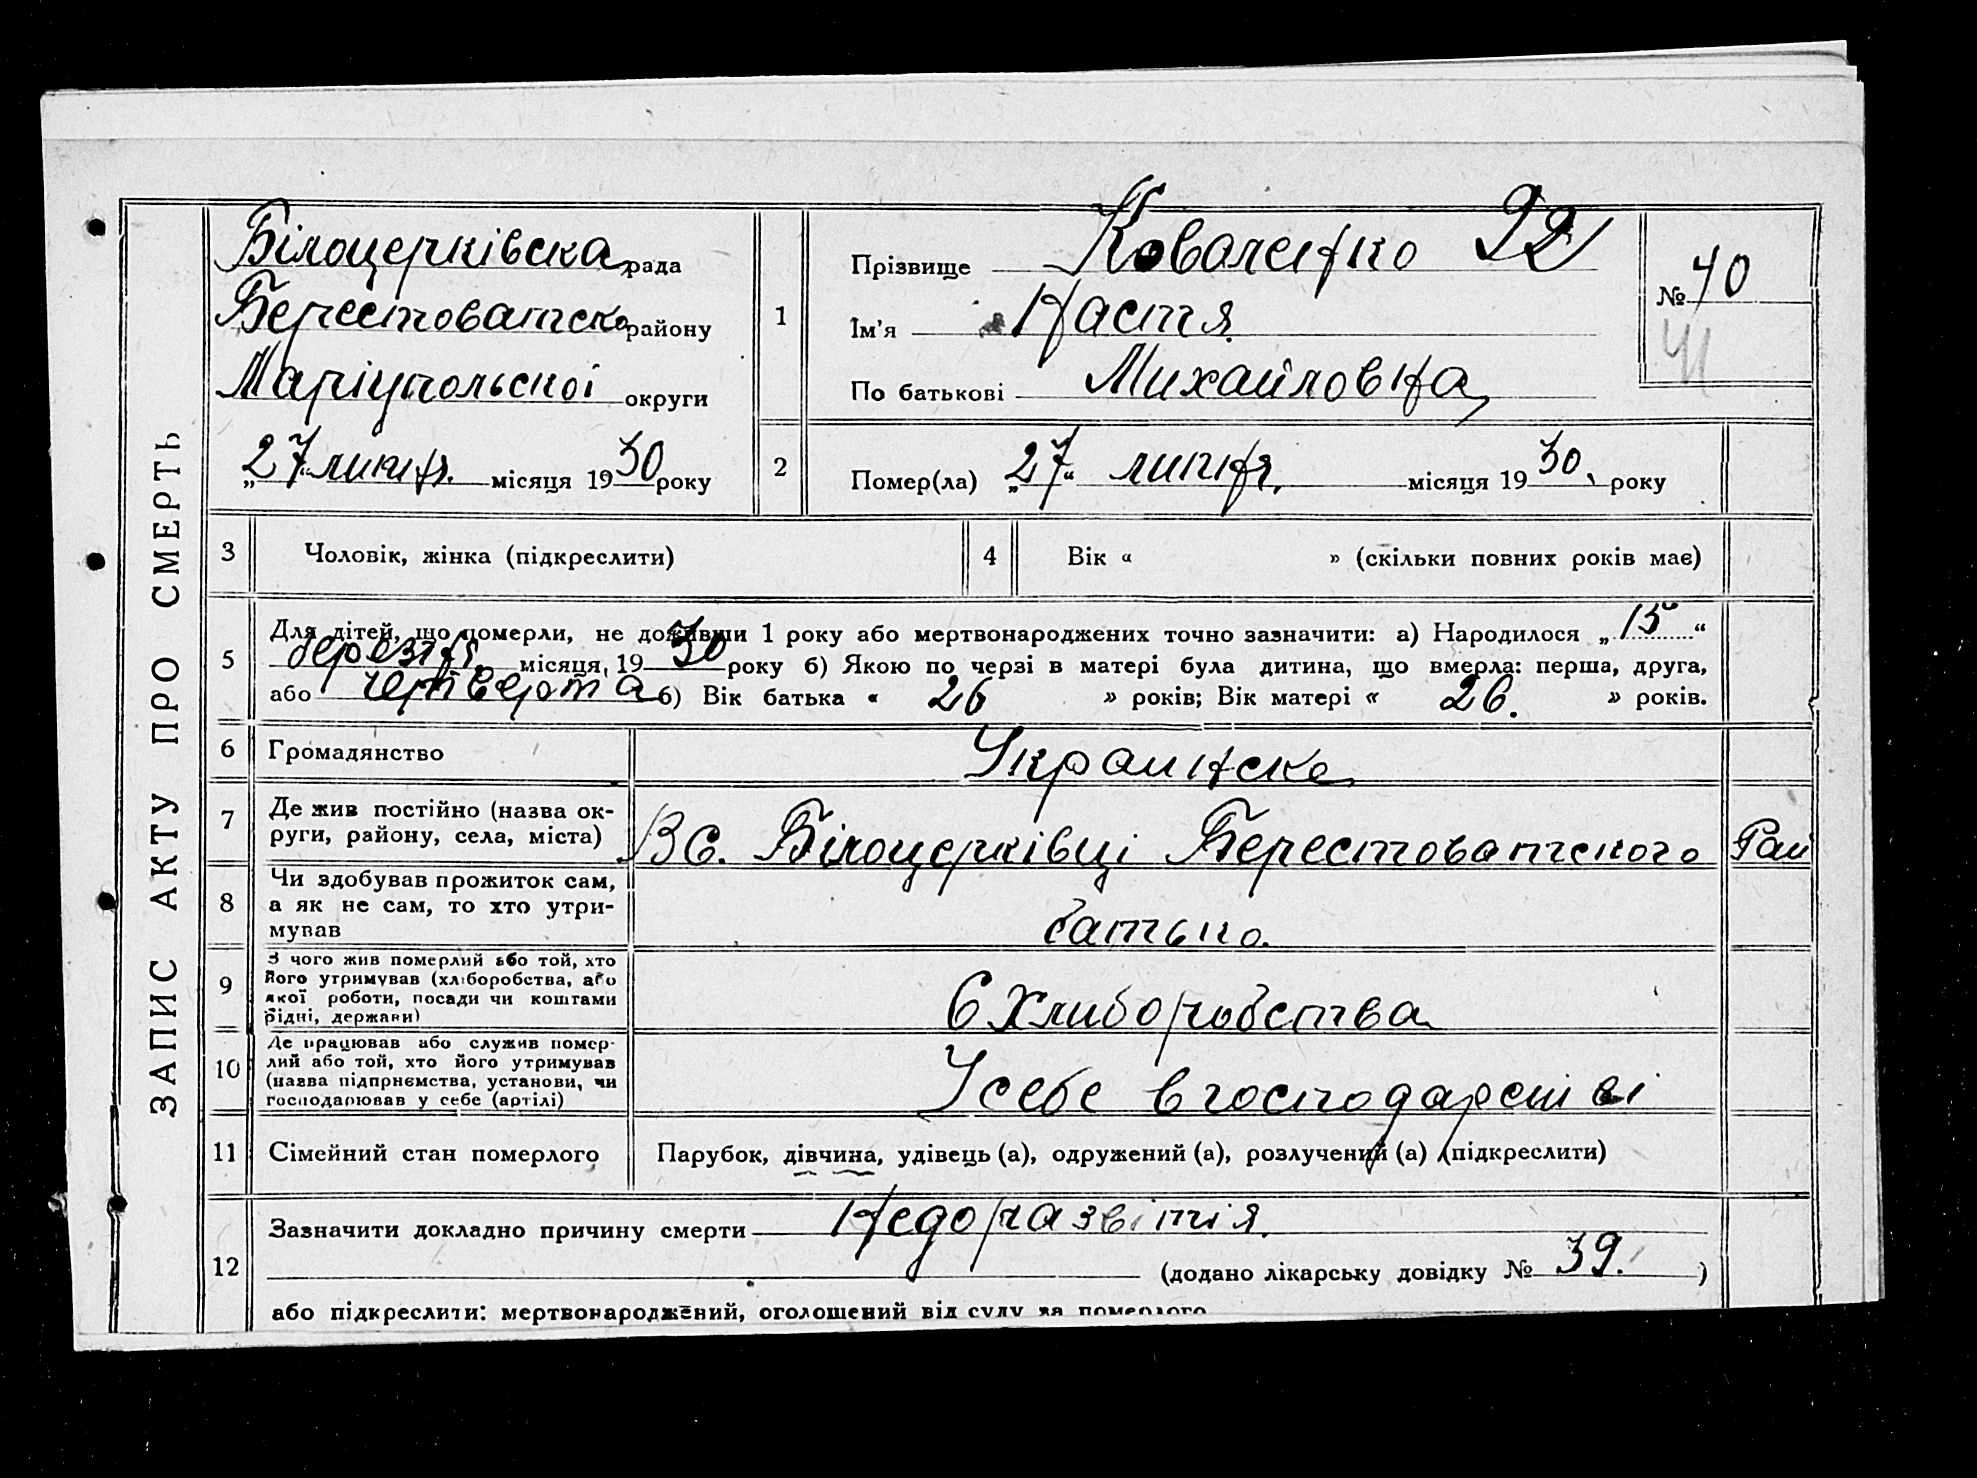 ЗАПИС АКТУ ПРО СМЕРТЬ
Білоцерківська рада
Берестоватско району
Маріупольскої округи
„27“ липня. місяця 1930 року
1
Прізвище Коваленко 22
Ім'я Настя
По батькові Михайловна
№ 40
41
2
Помер(ла) „27“ липня. місяця 1930. року
3 Чоловік, жінка (підкреслити)
4 Вік « » (скільки повних років має)
5
Для дітей, що померли, не доживши 1 року або мертвонароджених точно зазначити: а) Народилося „15“
березня місяця, 1930 року б) Якою по черзі в матері була дитина, що вмерла: перша, друга,
або четверта б) Вік батька « 26 » років; Вік матері « 26. » років.
6 Громадянство Украинске
7 Де жив постійно (назва ок-
руги, району, села, міста) В с. Білоцерківці Берестоватского Рай
8 Чи здобував прожиток сам,
а як не сам, то хто утри-
мував батько.
9 З чого жив померлий або той, хто
його утримував (хліборобства, або
якої роботи, посади чи коштами
рідні, держави) С хлиборобства
10 Де працював або служив помер-
лий або той, хто його утримував
(назва підприємства, установи, чи
господарював у себе (артілі) У себе в господарстві
11 Сімейний стан померлого Парубок, дівчина, удівець (а), одружений (а), розлучений (а) (підкреслити)
12
Зазначити докладно причину смерти Недоразвітія.
(додано лікарську довідку № 39. )
або підкреслити: мертвонароджений, оголошений від суду за померлого